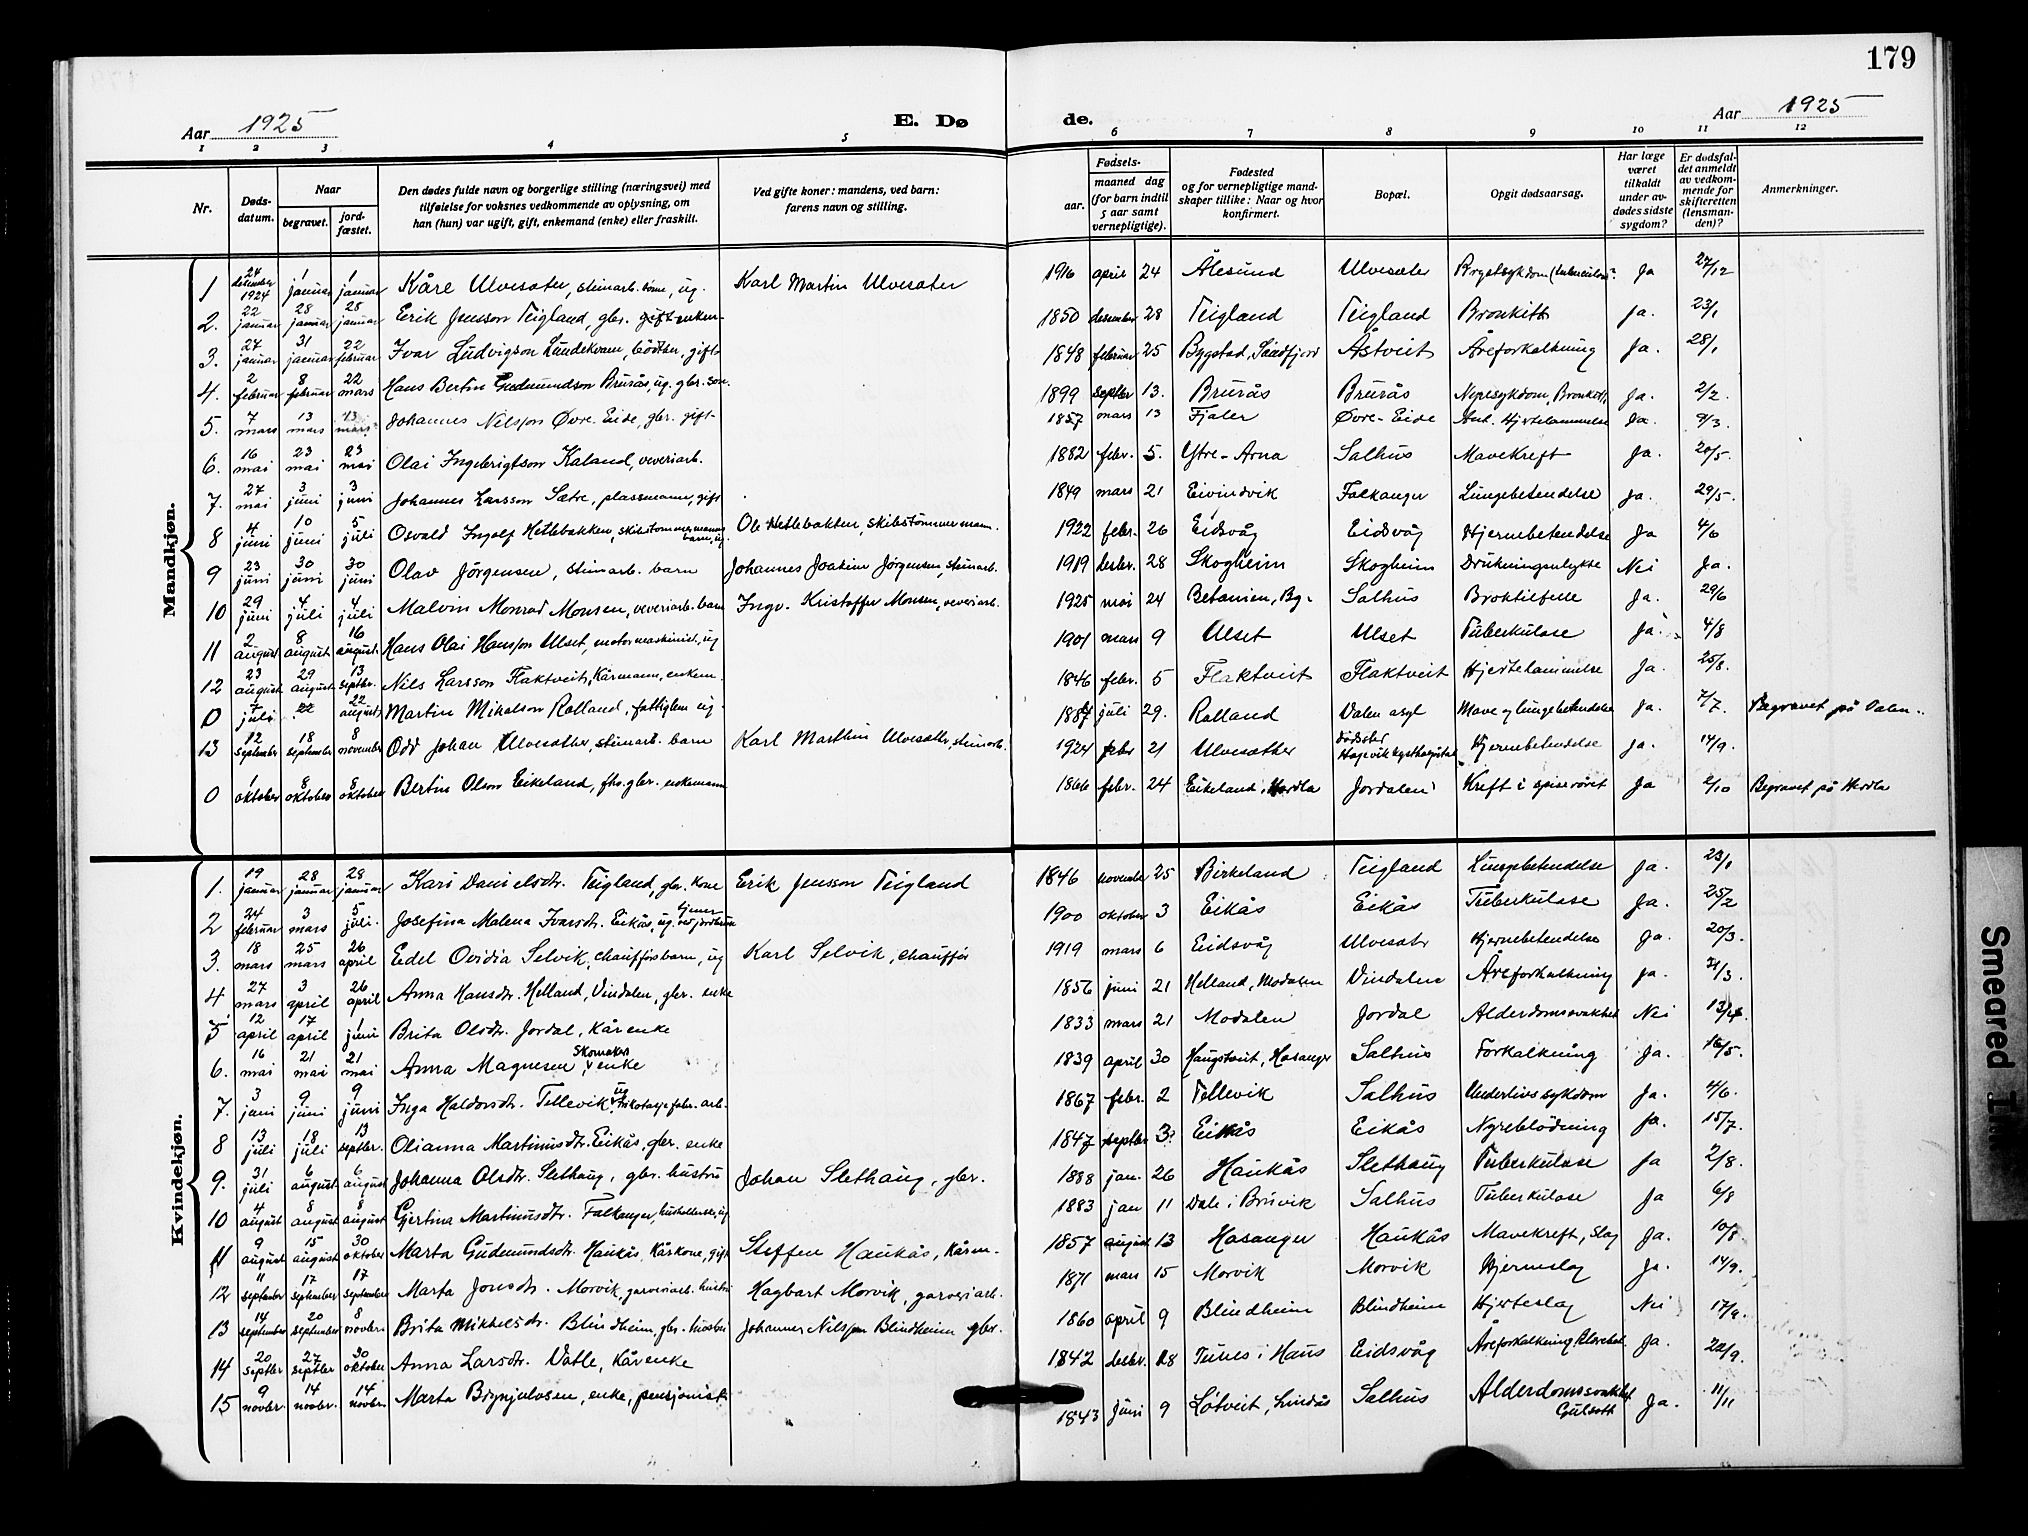 179
Aar 1925 E. Dø de. Aar 1925
1 2 3 4 5 6 7 8 9 10 11 12
Nr. Dødsdatum. Naar begravet. jordfæstet. Den dødes fulde navn og borgerlige stilling (næringsvei) med tilføielse for voksnes vedkommende av oplysning, om han (hun) var ugift, gift, enkemand (enke) eller fraskilt. Ved gifte koner: mandens, ved barn: farens navn og stilling. Fødsels- aar. maaned dag (for barn indtil 5 aar samt vernepligtige). Fødested og for vernepligtige mandskaper tillike: Naar og hvor konfirmert. Bopæl. Opgit dødsaarsag. Har læge været tilkaldt under avdødes sidste sygdom? Er dødsfaldet anmeldt av vedkommende for skifteretten (lensmanden)? Anmerkninger.
Mandkjøn.
1 24 desember 1924 1 januar 1 januar Kåre Ulvesæter, steinarb. sønn, ug. Karl Martin Ulvesæter 1916 april 24 Ålesund Ulvesæter Brystsykdom Ja 27/12
2. 22 januar 28 januar 28 januar Erik Jensson Teigland, gbr. enkem. 1850 desember 28 Teigland Teigland Bronkitt ja. 23/1
3. 27 januar 31 januar 22 februar Ivar Ludvigson Lundekvam, bödker, gift 1848 februar 25 Bygstad, Sundfjord Åstveit Åreforkalkning Ja. 28/1
4. 2 februar 8 februar 22 mars Hans Bertin Gudmundson Brurås, ug. gbr. sön. 1899 septbr 13. Brurås Brurås Nyresykdom, Bronkitt Ja. 2/2.
5. 7 mars 13 mars 13 mars Johannes Nilsson Øvre-Eide, gbr. gift 1857 mars 13 Fjaler Øvre-Eide Hjertelammelse Ja. 9/3.
6. 16 mai 23 mai 23 mai Olai Ingebrigtson Kaland, veveriarb. 1882 febr. 5. Ytre-Arna Salhus Mavekreft Ja. 20/5.
7. 27 mai 3 juni 3 juni Johannes Larsson Sætre, plassmann, gift 1849 mars 21 Eivindvik Falkanger Lungebetendelse ja. 29/5.
8 4 juni 10 juni 5 juli Osvald Ingolf Hetlebakken, skibstömmermanns barn, ug. Ole Hetlebakken, skibstömmermann. 1922 febr. 26 Eidsvåg Eidsvåg Hjernebetendelse Ja 4/6
9 23 juni 30 juni 30 juni Olav Jörgensen, steinarb. barn Johannes Joakim Jörgensen, steinarb. 1919 desbr. 28 Skogheim Skogheim Drukningsulykke Nei Ja.
10 29 juni 4 juli 4 juli Malvin Monrad Monsen, veveriarb. barn Ingv. Kristoffer Monsen, veveriarb. 1925 mai 24 Betanien, Bg. Salhus Broktilfelle Ja. 29/6
11 2 august 8 august 16 august Hans Olai Hansson Ulset, motormaskinist, ug 1901 mars 9 Ulset Ulset Tuberkulose Ja. 4/8
12 23 august 29 august 13 septbr. Nils Larsson Flaktveit, Kårmann, enkem. 1846 febr. 5 Flaktveit Flaktveit Hjertelammelse Ja. 25/8.
0 7 juli 22 august Martin Mikalson Rolland, fattiglem ug. 1887 juli 29. Rolland Dalen asyl Mave og lungebetendelse ja. 7/7. Begravet på Dalen.
13 12 september 18 september 8 november Odd Johan Ulvesæther, steinarb. barn Karl Marthin Ulvesæther, steinarb. 1924 febr 21 Ulvesæther Hagevik kysthospital Hjernebetendelse ja. 14/9.
0 1 oktober 8 oktober 8 oktober Bertin Olson Eikeland, fhv. gbr. enkemann 1866 febr. 24 Eikeland, Herdla Jordalen Kreft i spiserøret Ja 2/10 Begravet på Herdla
Kvindekjøn.
1. 19 januar 28 januar 28 januar Kari Danielsdtr. Teigland, gbr. kone Erik Jensson Teigland 1846 november 25 Birkeland Teigland Lungebetendelse Ja. 23/1
2 24 februar 3 mars 5 juli. Josefina Malena Ivarsdtr. Eikås, ug. 1900 oktober 3 Eikås Eikås Tuberkulose Ja. 25/2
3. 18 mars 25 mars 26 april Edel Ovidia Selvik, chaufförs barn, ug Karl Selvik, chaufför 1919 mars 6 Eidsvåg Ulvesætr Hjernebetendelse ja. 20/3.
4. 27 mars 3 april 26 april Anna Hansdtr. Helland, Vindalen, gbr. enke 1856 juni 21 Helland, Modalen Vindalen Åreforkalkning ja. 31/3.
5 12 april 17 april 1 juni Brita Olsdtr. Jordal, Kårenke 1833 mars 21 Modalen Jordal Alderdomssvakhet Nei 13/4.
6. 16 mai 21 mai 21 mai Anna Magnesen, Skomaker enke 1839 april 30 Haugstveit, Hosanger Salhus Forkalkning Ja. 16/5.
7. 3 juni 9 juni 9 juni Inga Haldorsdtr. Tellevik, ug trikotasjefabr. arb. 1867 febr. 2 Tellevik Salhus Underlivssykdom Ja. 4/6.
8 13 juli 18 juli 13 septbr. Olianna Martinusdtr. Eikås, gbr. enke 1847 septbr 3? Eikås Eikås Nyreblödning ja. 15/7.
9. 31 juli 6 august 6 august Johanna Olsdtr. Slethaug, gbr. hustru Johan Slethaug, gbr. 1888 jan. 26 Haukås Slethaug Tuberkulose Ja 2/8.
10 4 august 8 august 8 august Gjertina Martinusdtr. Falkanger, husholderske, ug 1883 jan 11 Dale i Bruvik Salhus Tuberkulose Ja 6/8
11 9 august 15 august 30 oktober Marta Gudmundsdtr. Haukås, Kårkone, gift Steffen Haukås, Kårm. 1857 august 13 Hosanger Haukås Mavekreft, Slag Ja. 10/8.
12 11 september 17 september 17 september Marta Jonsdtr. Morvik, garveriarb. hustru Hagbart Morvik, garveriarb. 1871 mars 15 Morvik Morvik Hjerneslag Ja. 14/9.
13 14 september 20 september 8 novbr. Brita Mikkelsdtr. Blindheim, gbr. hustru Johannes Nilsson Blindheim gbr. 1860 april 9 Blindheim Blindheim Hjerteslag Nei 17/9.
14 20 septbr 27 septbr 30 oktober Anna Larsdtr. Vatle, Kårenke 1842 desbr. 18 Tunes i Haus Eidsvåg Åreforkalkning Ja. 22/9.
15 9 novbr. 14 novbr. 14 novbr. Marta Brynjulvsen, enke, pensjonist 1843 Juni 9 Løtveit, Lindås Salhus Alderdomssvakhet Gulsott Ja. 11/11
Smeared